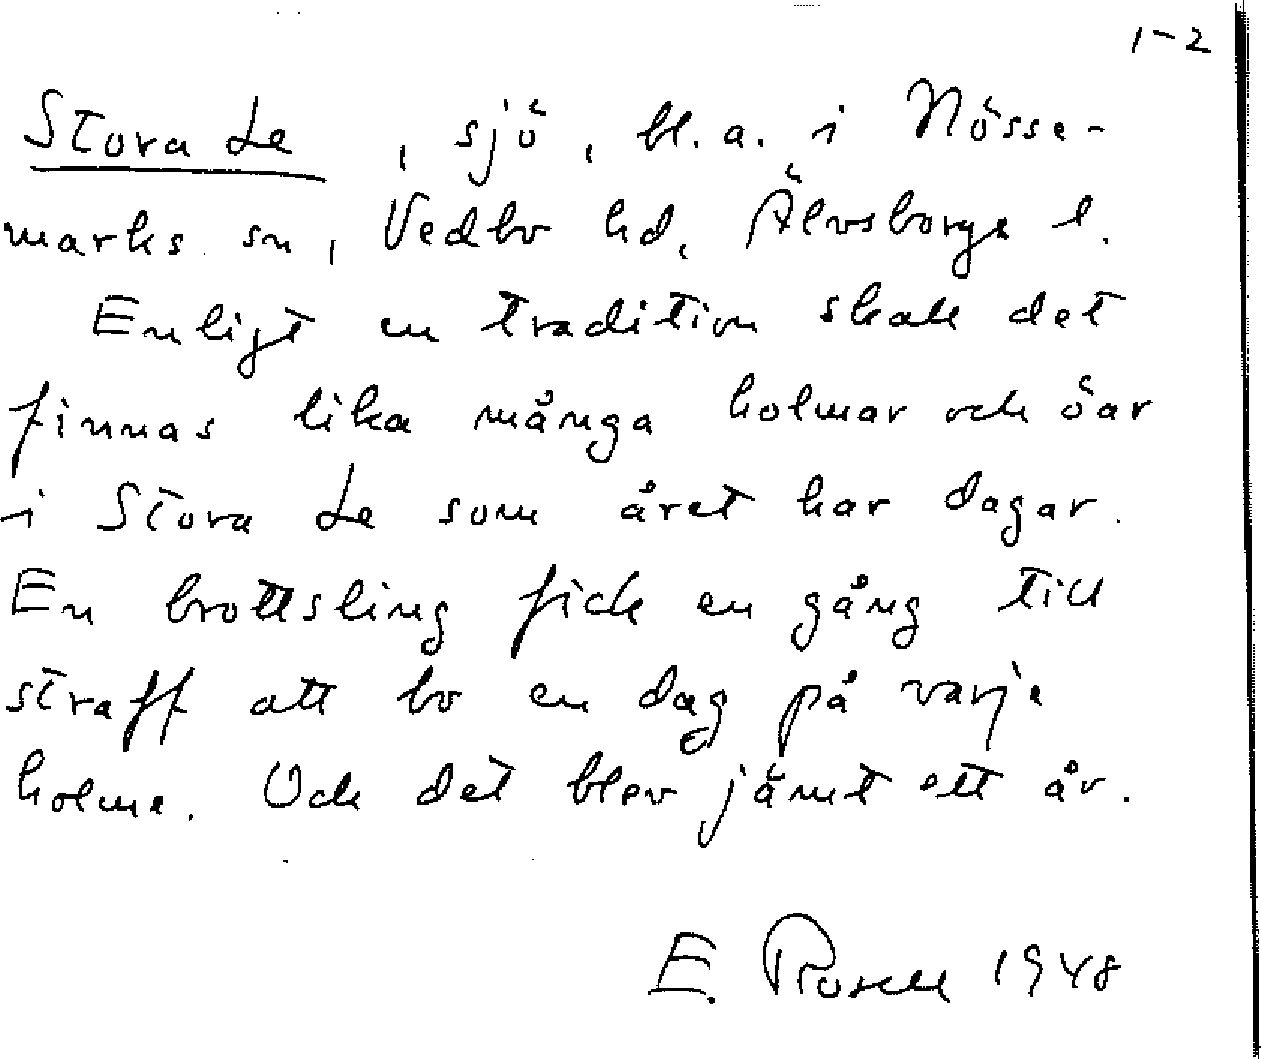 1-2
Stora Le, sjö, bl.a. i Nösse-
marks sn, Vedbo hd, Älvsborgs l.
Enligt en tradition skall det
finnas lika många holmar och öar
i Stora Le som året har dagar.
En brottsling fick en gång till
straff att bo en dag på varje
holme. Och det blev jämt ett år.
E. Rosell 1948